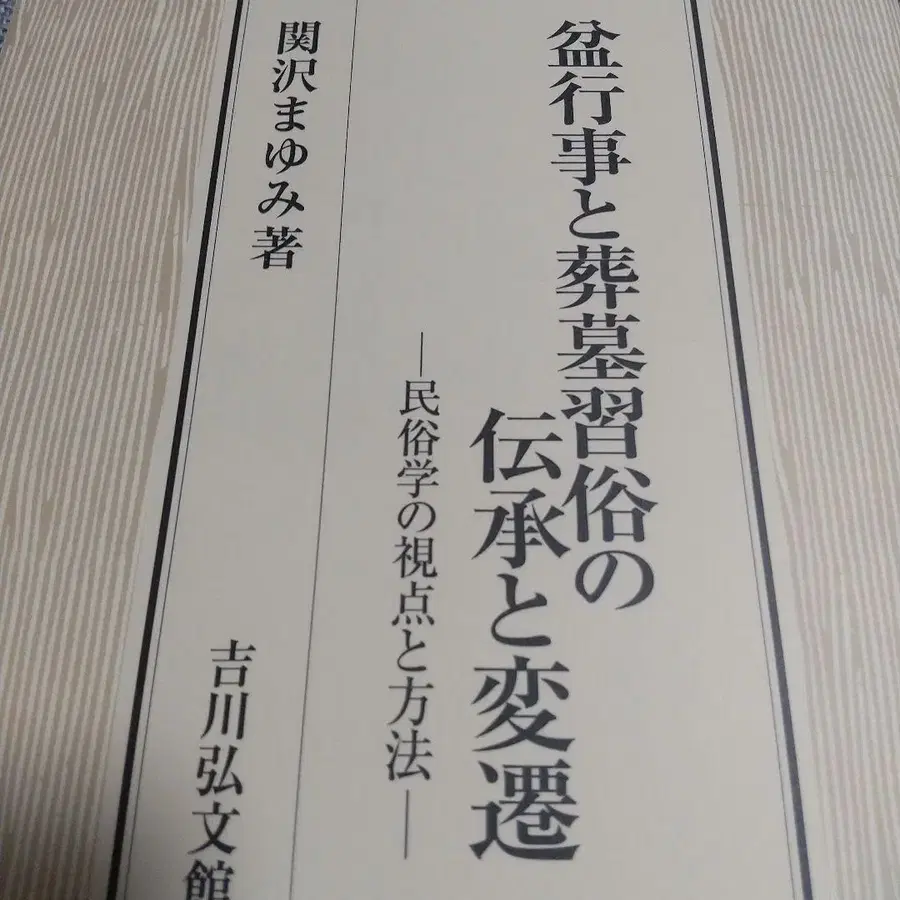 盆行事と葬墓習俗の
伝承と変遷
―民俗学の視点と方法―
関沢まゆみ著
吉川弘文館